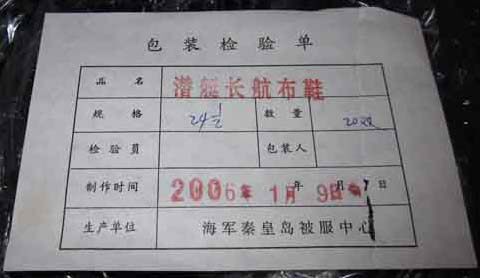 包装检验单
品名 潜艇长航布鞋
规格 24½ 数量 20双
检验员 包装人
制作时间 2006年1月9日 年 月 日
生产单位 海军秦皇岛被服中心